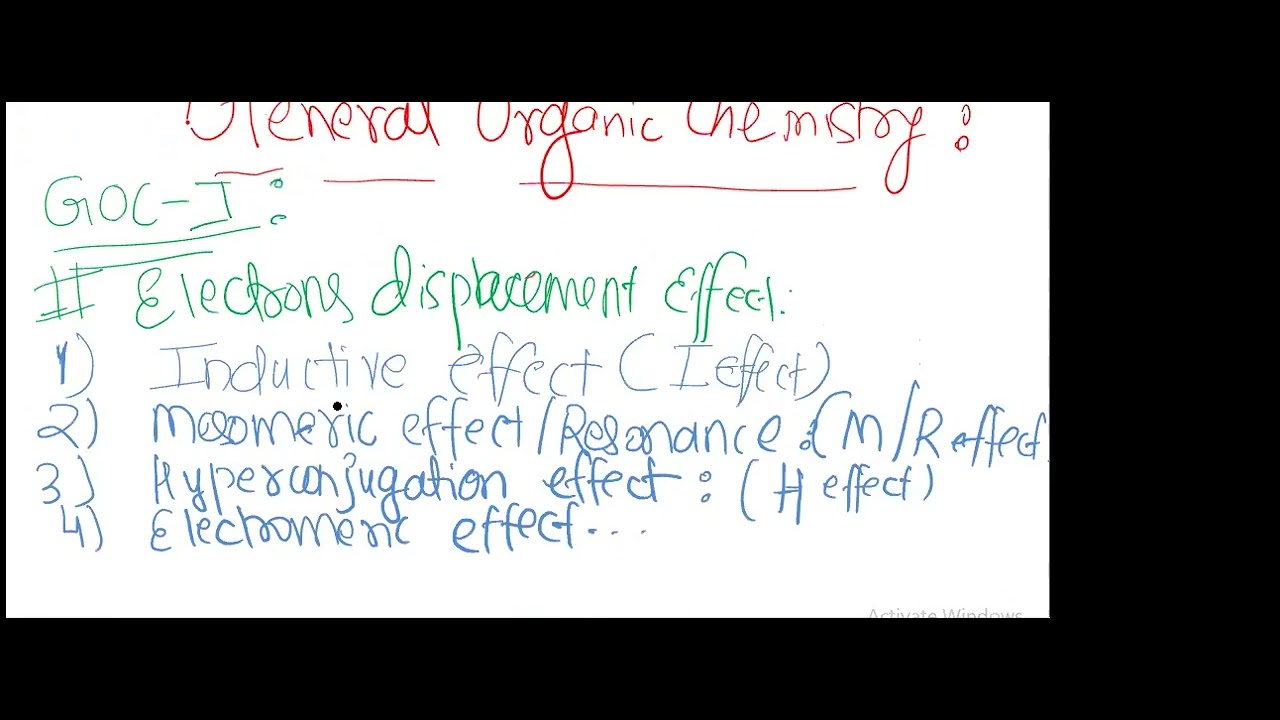 General Organic Chemistry :
GOC-I :
# Electrons displacement Effect.
1) Inductive effect (I effect)
2) Mesomeric effect/Resonance :(M/R effect
3) Hyperconjugation effect : (H effect)
4) Electromeric effect...
Activate Windows